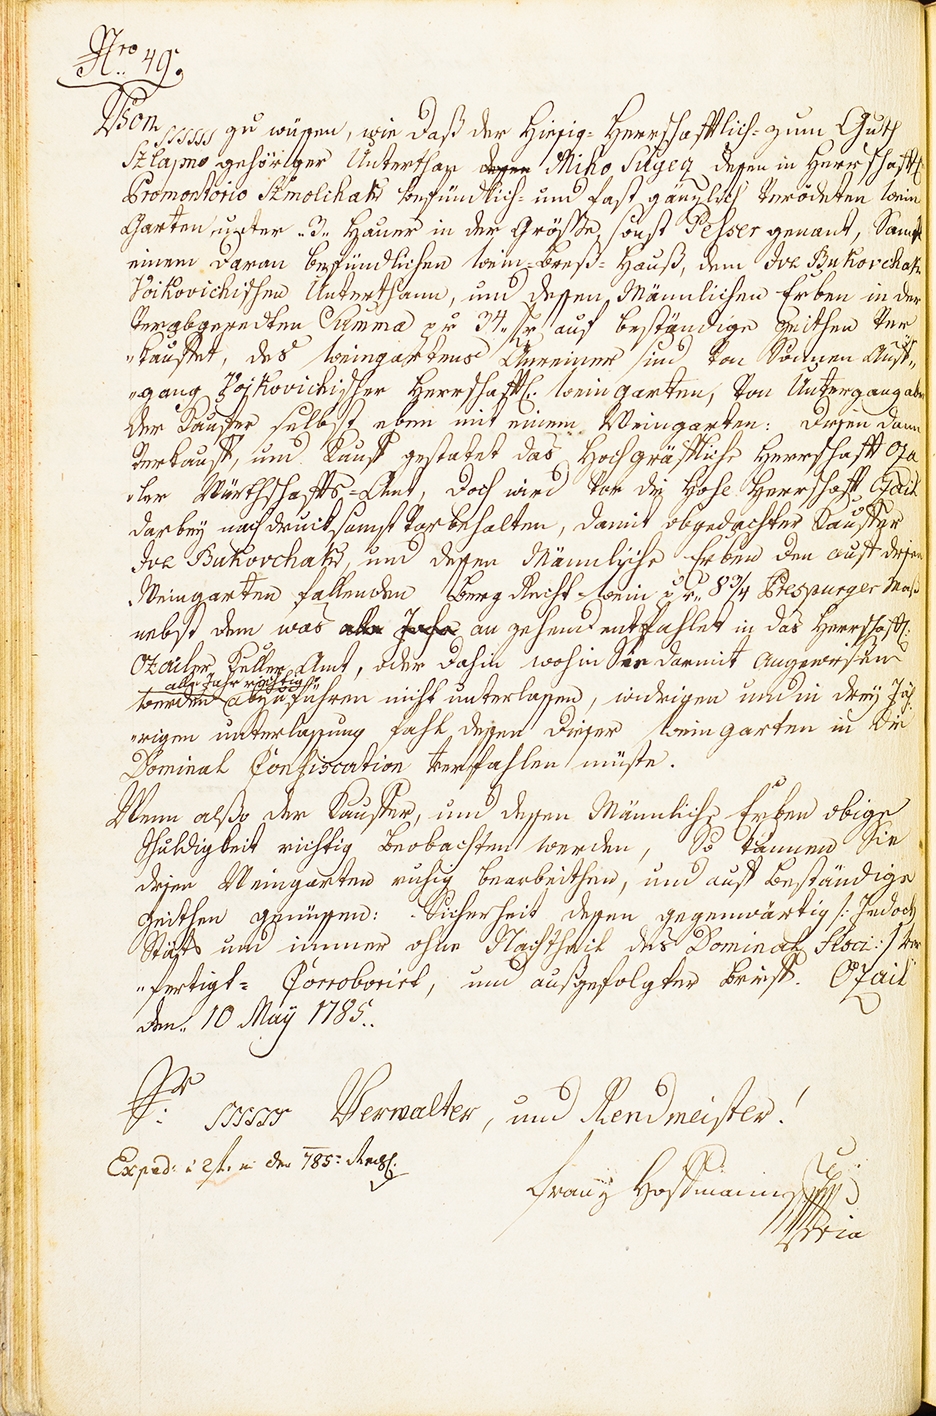 Nro 49.
Von sssss zu wüssen, wie daß der Hiesig- Herrschafftlich- zum Guth
Szlajmo gehöriger Unterthan dessen Miko Sugeg dessen in Herrschafftl.
Promontorio Smolchak befündlich- und fast gänzlich verödeten Wein
Garten unter ,,3,, Hauer in der Größe, sonst Pesser genant, Samt
einem daran befündlichen Wein-Preß-Hauß, dem Ive Bukovchak
Voikovichischen Unterthann, und dessen Männlichen Erben in der
verabgeredten Summa pr 34. fr auf beständige Zeithen ver
,,kauffet, des Weingartens Anreiner sind von Sonnen Auf,,
,,gang Vojkovichischer Herrschaftl. Weingarten, von Untergang aber
der Kaufer selbst eben mit einem Weingarten: diesen dann
Verkauff, und Kauff gestatet das Hochgräffliche Herrschafft Oza
,,ler Würthschaffts-Amt, doch wird vor die Hohe Herrschafft Ozail
darbey nachdrucksamst vorbehalten, damit obgedachter Kauffer
Ive Bukovchak, und dessen Männlichen Erben den aus diesen
Weingarten fallenden Berg Recht-Wein pr. 8¾ Prespurger Maß
nebst dem was alle Jahr an Zehend entfahlet in das Herrschafftl:
Ozailer Keller Amt, oder dahin wohin Sie darmit angewisen
alle Jahr richtig
werden abzuführen nicht unterlassen, widrigen und in drey Jäh
,,rigen unterlassung fahl dessen dieser Weingarten in die
Dominal Confiscation verfahlen müste.
Wenn alßo der Kauffer, und dessen Männliche Erben obige
Schuldigkeit richtig Beobachten werden, So können Sie
diesen Weingarten ruhig bearbeithen, und auf Beständige
Zeithen genüssen: Sicherheit dessen gegenwärtig /: Jedoch
Stäts und immer ohne Nachtheil des Dominal Fisci :/ ver
,,fertigt- Corroborirt, und ausgefolgter Brieff. Ozail
den,, 10 May 1785..
sssss Verwalter, und Rendmeister!
Exped: in der 785:
Franz Hoffmann